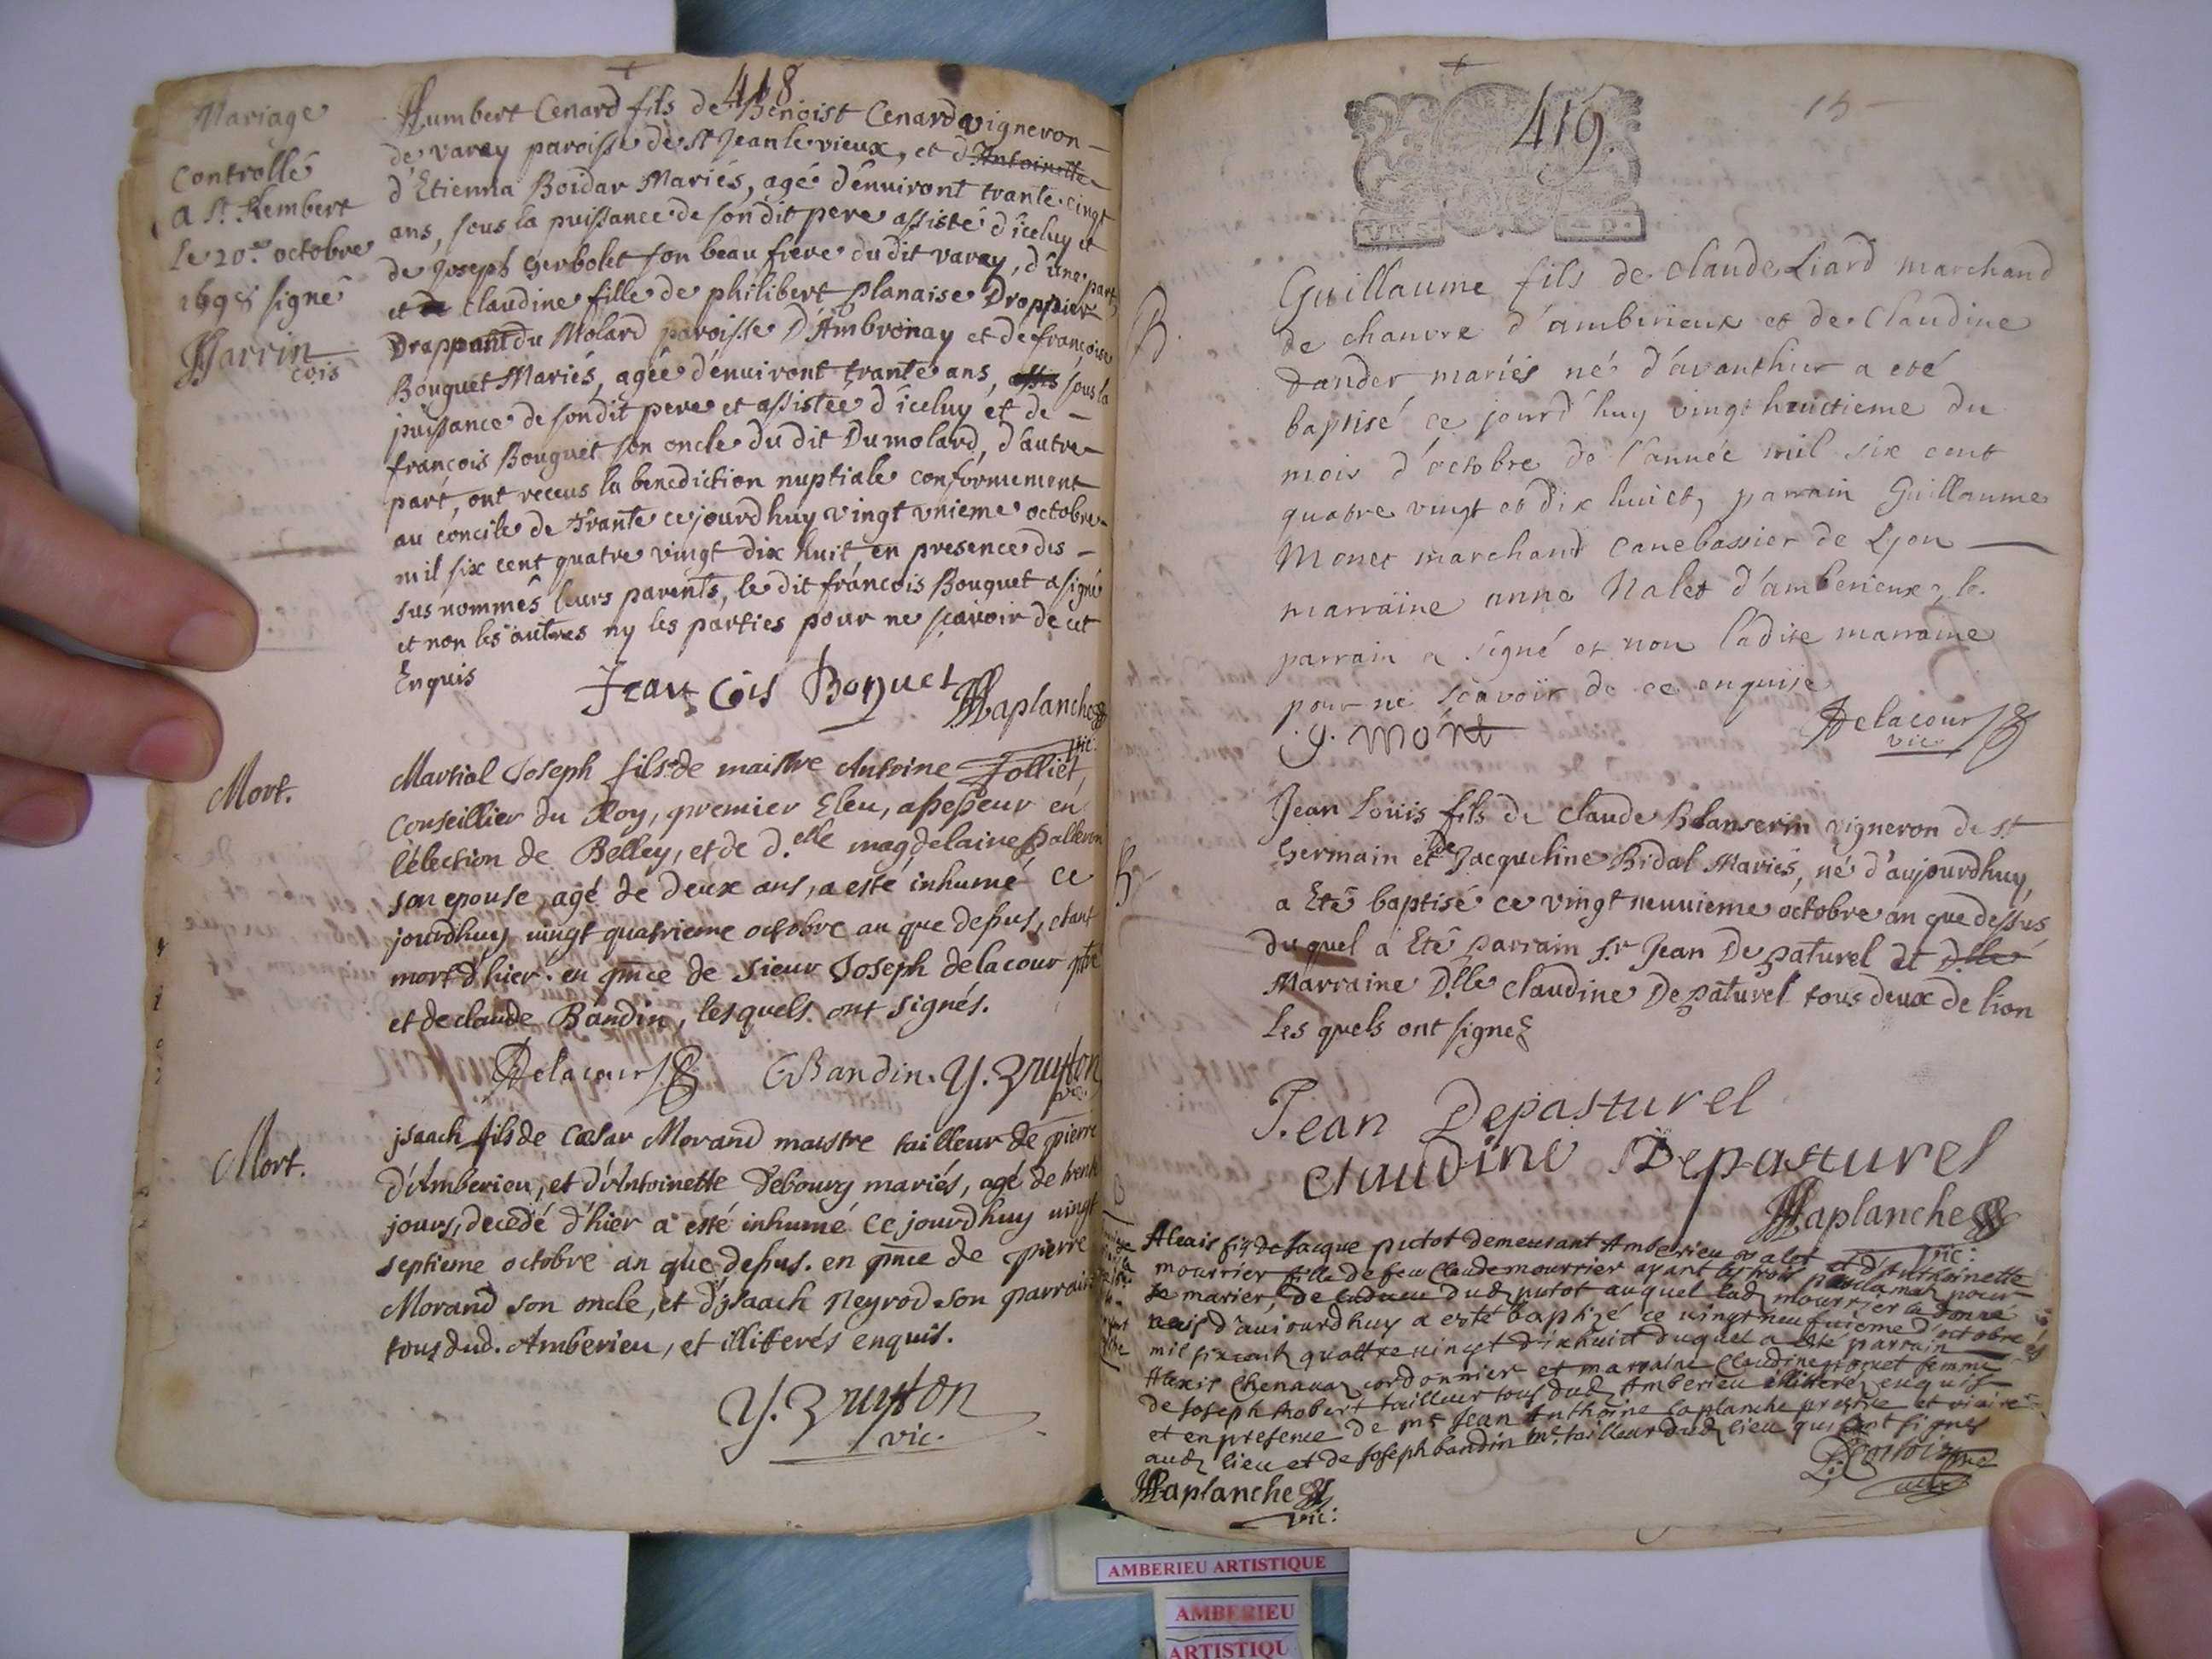 418
Mariage
Controllé
a St. Rembert
le 20.me octobre
1698 signé
Humbert Cenard fils de Benoist Cenard vigneron
de varey paroisse de St Jean le vieux, et d'Antoinette
d'Etienna Boidar Mariés, agé d'environt trante cingt
ans, sous la puissance de son dit pere assisté d'iceluy et
de Joseph Gerbolet son beau frere du dit varey, d'une part
et claudine fille de philibert planaise Droppier
Drappant du Molard paroisse D'Ambronay et de françoise
Bouguet Mariés, agée d'environt trante ans, sous la
puissance de son dit pere et assistée d'iceluy et de
françois Bouguet son oncle du dit Dumolard, d'autre
part, ont receus la benediction nuptiale conformement
au concile de trante ce jourd'huy vingt unieme octobre
mil six cent quatre vingt dix huit en presence des
sus nommés leurs parents, le dit françois Bouguet a signé
et non les autres ny les parties pour ne sçavoir de cet
Enquis
Laplanche
vic:
Mort.
Martial Joseph fils de maistre Antoine Jolliet,
Conseillier du Roy, premier Eleu, assesseur en
l'élection de Belley, et de d.elle magdelaine
son epouse, agé de deux ans, a esté inhumé ce
jourdhuy vingt quatrieme octobre an que dessus, etant
mort d'hier. en pnce de sieur Joseph delacour ptre
et de claude Bandin, lesquels ont signés.
Delacour CBandin. Y. Bruyson
vic.
Mort.
jsaach fils de Cæsar Morand maistre tailleur de pierre
d'Amberieu, et d'Antoinette Debourg mariés, agé de trente
jours, decedé d'hier a esté inhumé ce jourd'huy vingt
septieme octobre an que dessus. en pnce de pierre
Morand son oncle, et d'jsaach Neyrod son parrain
tous dud. Amberieu, et illiterés enquis.
Y. Bruyson
vic.
419.
15
B.
Guillaume fils de claude Liard marchand
de chanvre d'amberieux et de Claudine
Dander mariés né d'avanthier a eté
baptisé ce jourd'huy vingt huictieme du
mois d'octobre de l'année mil six cent
quatre vingt et dix huict, parrain Guillaume
Monet marchand canebassier de Lyon
marraine anne Nalet d'amberieux, le
parrain a signé et non ladite marraine
pour ne sçavoir de ce enquise
g. mont Delacour
vic.
B
Jean Loüis fils de Claude Blanserin vigneron de St
Germain et de Jacqueline Bidal Mariés, né d'aujourdhuy,
a Eté baptisé ce vingt neuvieme octobre an que dessus
duquel a Eté parrain Sr Jean Depaturel et D.lle
Marraine D.lle claudine Depaturel tous deux de lion
Les quels ont signez
Jean Depasturel
claudine Depasturel
Laplanche
vic:
B
Alexis fiz de Jacque putot demeurant Amberieu valet et d'Anthoinette
mourrier fille de feu Claude mourrier ayant les trois proclamaz pour
se marier, dudz putot auquel ladz mourrier la donné
nais d'aujourdhuy a esté baptizé ce vingt neufvieme d'octobre
mil six centz quattre vingt dixhuict duquel a esté parrain
Alexis Chenavaz cordonnier et marraine Claudine femme
de Joseph Robert tailleur tous dudz Amberieu illiterez enquis
et en presence de mre Jean Anthoine Laplanche prestre et vicaire
audz lieu et de Joseph bandin mre tailleur dudz lieu qui ont signes
Laplanche
vic:
AMBERIEU ARTISTIQUE
AMBERIEU
ARTISTIQU